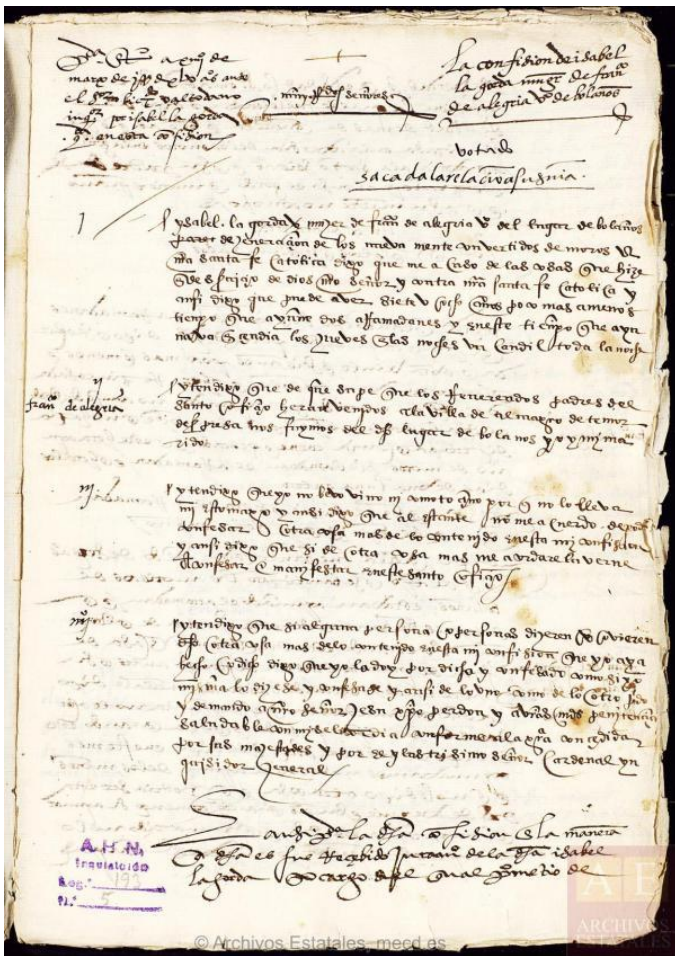 março de
el
ysabel la gorda
en esta confision
muy Rdos señores
La confision de isabel
la gorda muger de franco
de alegria vo de bolaños
votado
sacada la relacion a su genia.
1
ysabel la gorda muger de franco de alegria vo del lugar de bolaños
de generacion de los nueva mente convertidos de moros a
nra santa fe catolica digo que me acuso de las cosas que hize
de dios nro señor y contra nra santa fe catolica y
ansi digo que puede aver siete v ocho años poco mas a menos
tienpo que ayune dos y en este tienpo que ayu
nava encendia los jueves en las noches vn candil toda la noche
ij
franco de alegria
yten digo que de que supe que los Reverendos padres del
santo oficio heran venidos a la villa de almagro de temor
de presa nos fuymos del dho lugar de bolaños yo y mi ma
rido
iij
yten digo que yo no bevo vino ni como tocino por q no lo lleva
mi estomago y ansi digo que al presente no me acuerdo de
confesar otra cosa mas de lo contenido en esta mi confision
y ansi digo que si de otra cosa mas me acordare la verne
a confesar e manifestar en este santo oficio
iiijo
yten digo que si alguna persona o personas dixeren o
otra cosa mas de lo contenido en esta mi confision que yo aya
hecho o dicho digo que yo la doy por dicha y confesada como si yo
misma lo dixese y confesase y ansi de lo vno como de lo otro pido
y demando a nro señor jesu xpo perdon y a vras mds penitencia
saludable con misericordia conforme a la gracia concedida
por sus magestades y por el yllustrisimo señor Cardenal yn
quisidor general
la dha confision en la manera
q dha es fue Recebido juramo de la dha isabel
la gorda so cargo del qual prometio de
A.H.N.
Inquisición
Leg.º 193
N.º 5
AE
ARCHIVOS
ESTATALES
© Archivos Estatales, mecd.es